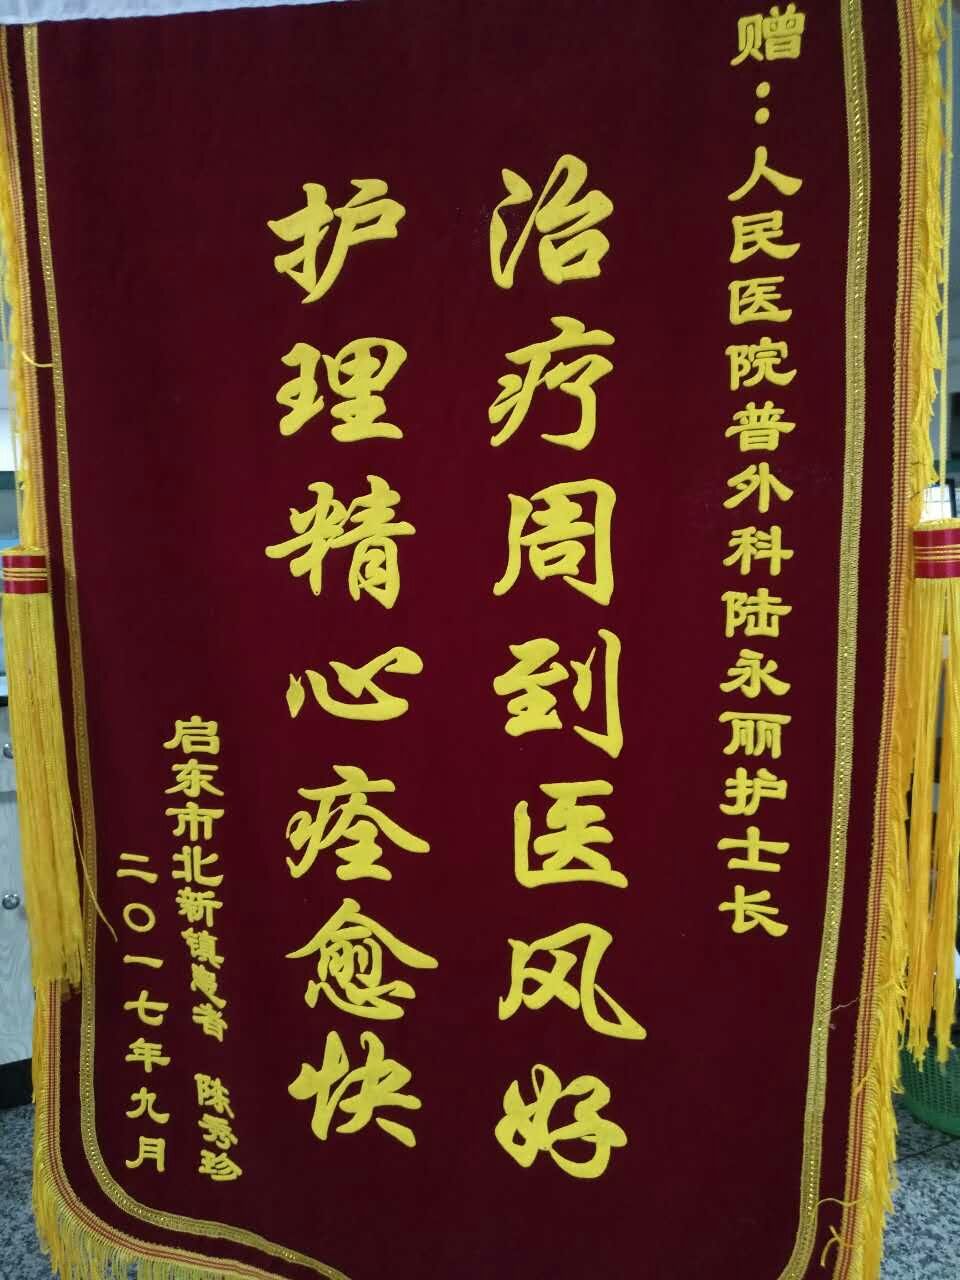 赠：人民医院普外科陆永丽护士长
治疗周到医风好
护理精心痊愈快
启东市北新镇患者 陈秀珍
二〇一七年九月